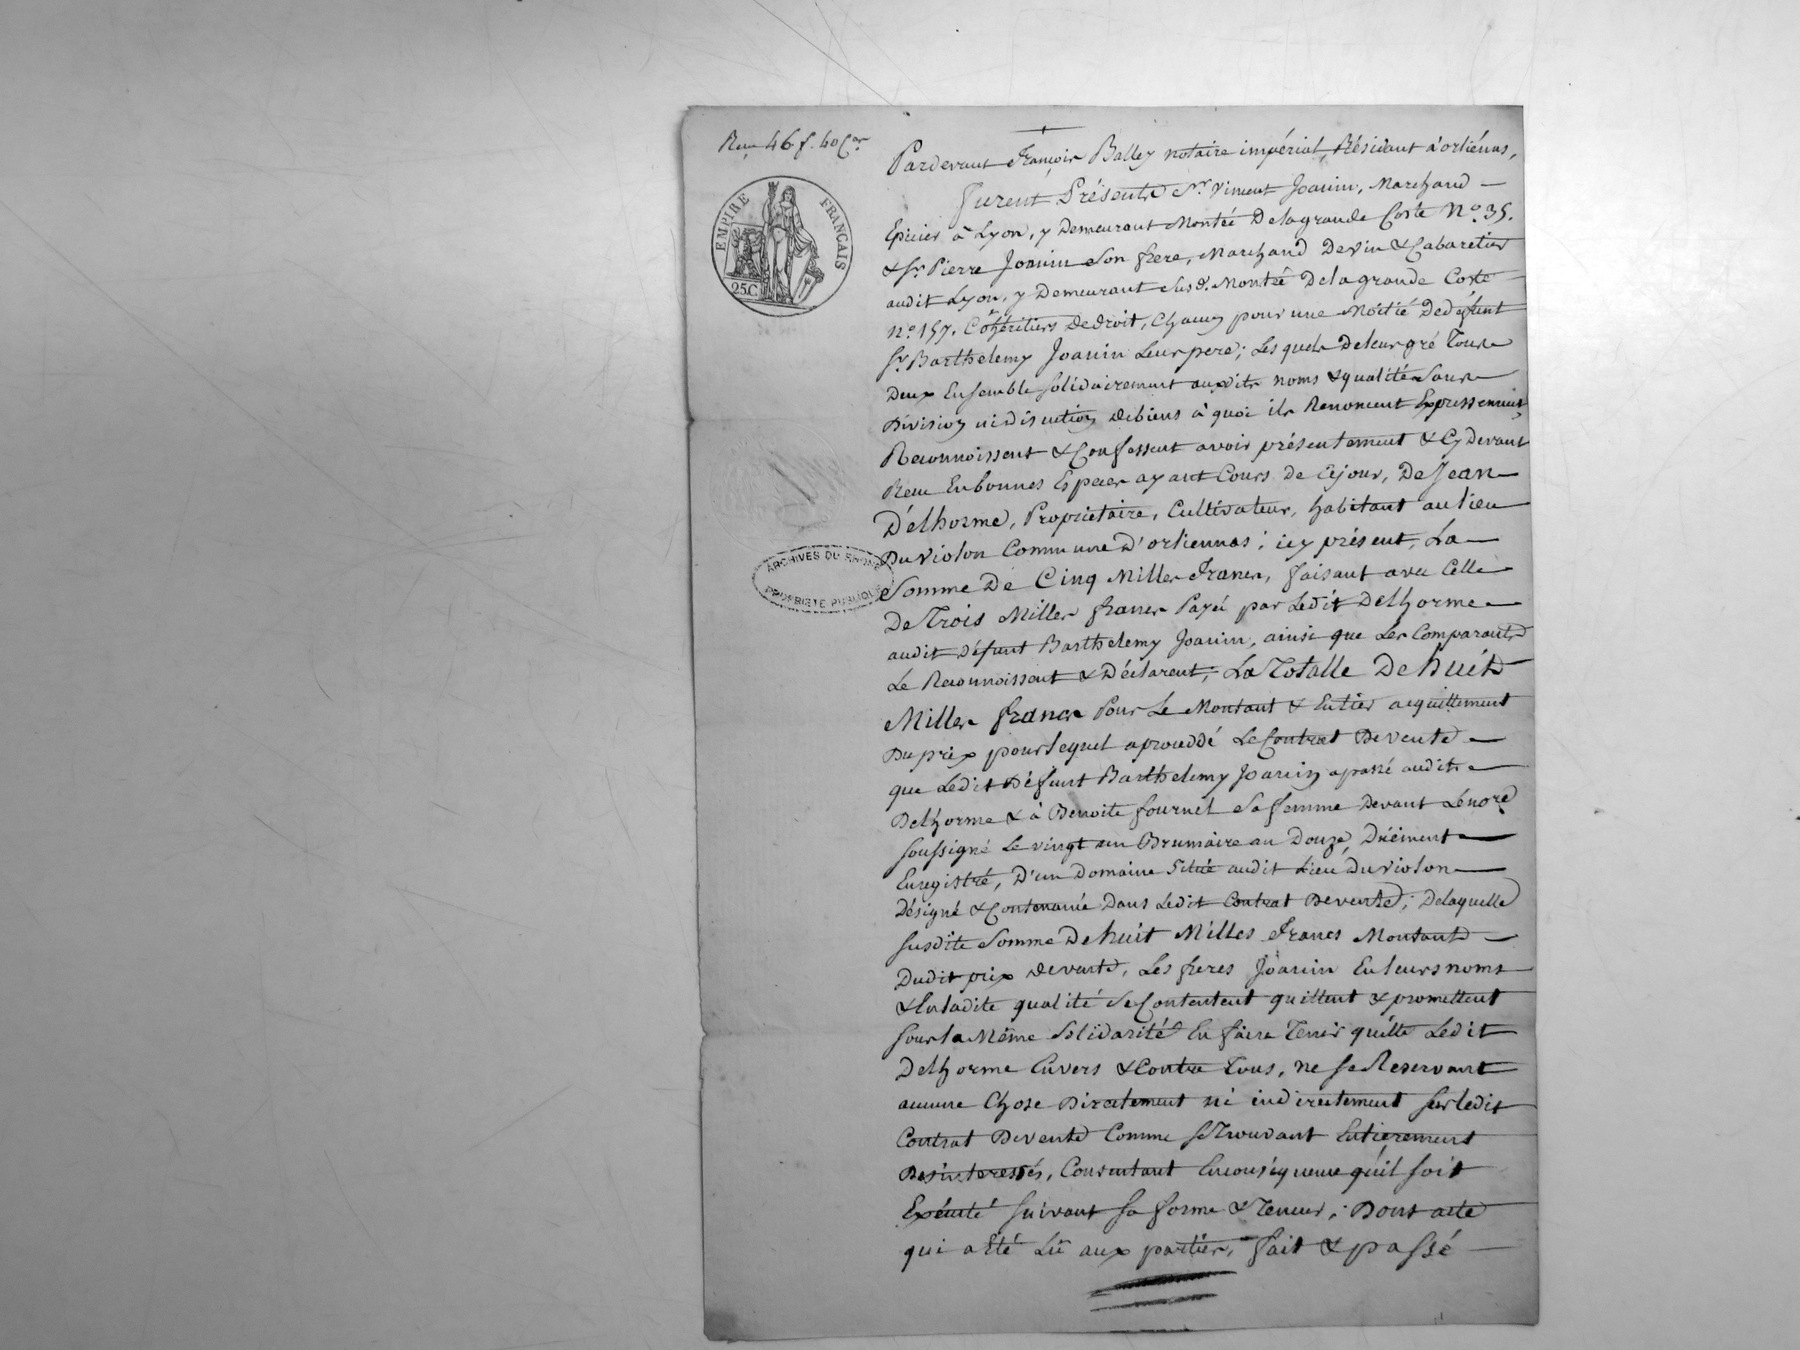 Reçu 46 f. 40 C.es
EMPIRE FRANÇAIS
25.C.
ARCHIVES DU RHÔNE
PROPRIÉTÉ PUBLIQUE
Pardevant François Balley notaire impérial, Résidant à orliénas,
furent Présents Sr. Vincent Joanin, Marchand
Epicier à Lyon, y Demeurant Montée Delagrande Coste No. 35.
& Sr. Pierre Joanin Son frere, Marchand Devin & Cabaretier
audit Lyon, y Demeurant Susd. Montée Delagrande Coste
No. 157. Cohéritiers Dedroit, Chacun pour une Moitié Dedéfunt
Sr. Barthelemy Joanin Leur pere; Lesquels Deleur gré Tous
Deux Ensemble Solidairement auxdits noms & qualités Sans
Division ni discution debiens à quoi ils Renoncent Expressement
Reconnoissent & Confessent avoir présentement & Cydevant
Recu Enbonnes Especes ayant Cours de Cejour, De Jean
Délhorme, Proprietaire, Cultivateur, habitant au lieu
Du violon Commune D'orliennas; icy présent, La
Somme De Cinq Milles Francs, faisant avec Celle
De Trois Milles francs Payée par Ledit Delhorme
audit Défunt Barthelemy Joanin, ainsi que Les Comparants
Le Reconnoissent & Déclarent, La Totalle De huit
Milles francs Pour Le Montant & Entier acquittement
Du prix pour lequel aprocédé Le Contrat De vente
que Ledit Défunt Barthelemy Joanin apassé audit
Delhorme & à Benoite fournel Sa femme Devant Lenore
Soussigné Le vingt un Brumaire an Douze, Düement
Enregistré, D'un Domaine Situé audit Lieu Du violon
Désigné & Contenu Dans Ledit Contrat De vente; Delaquelle
Susdite Somme De huit Milles Francs Montant
Dudit prix devente, Les freres Joanin En leurs noms
& En ladite qualité Se Contentent quittent & promettent
Sous la Même Solidarité En faire Tenir quitte Ledit
Delhorme Envers & Contre Tous, ne se Reservant
aucune Chose Directement ni indirectement Sur ledit
Contrat De vente Comme Se Trouvant Entierement
Desinteressés, Consentant Enconséquence qu'il soit
Exécuté Suivant Sa forme & Teneur; Dont acte
qui a Eté Lû aux parties, fait & passé